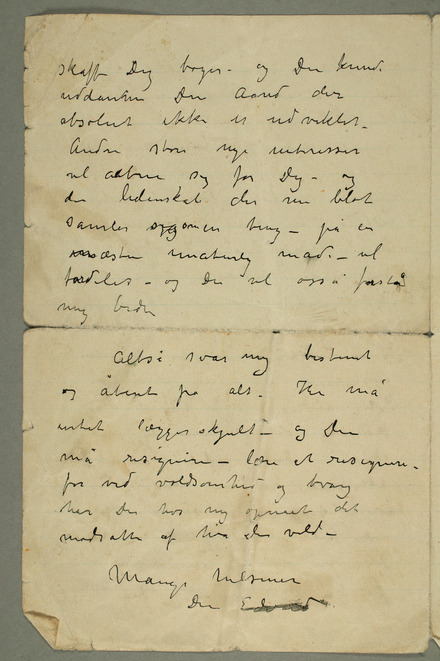 skaffe Dig bøger – og Du kunde
uddanne Din Aand der
absolut ikke er udviklet –
Andre store nye interesser
vil aabne sig for Dig – og
den lidenskab der nu blot
samler sig om en ting – på en
næsten unaturlig måde – vil
fordeles – og Du vil også forstå
mig bedre
Altså svar mig bestemt
og åbent på alt. Her må
intet lægges skjult – og Du
må resignere – lære at resignere –
for ved voldsomhed og tvang
har Du hos mig opnået det
modsatte af hva du vild –
Mange hilsener
Din Edvard